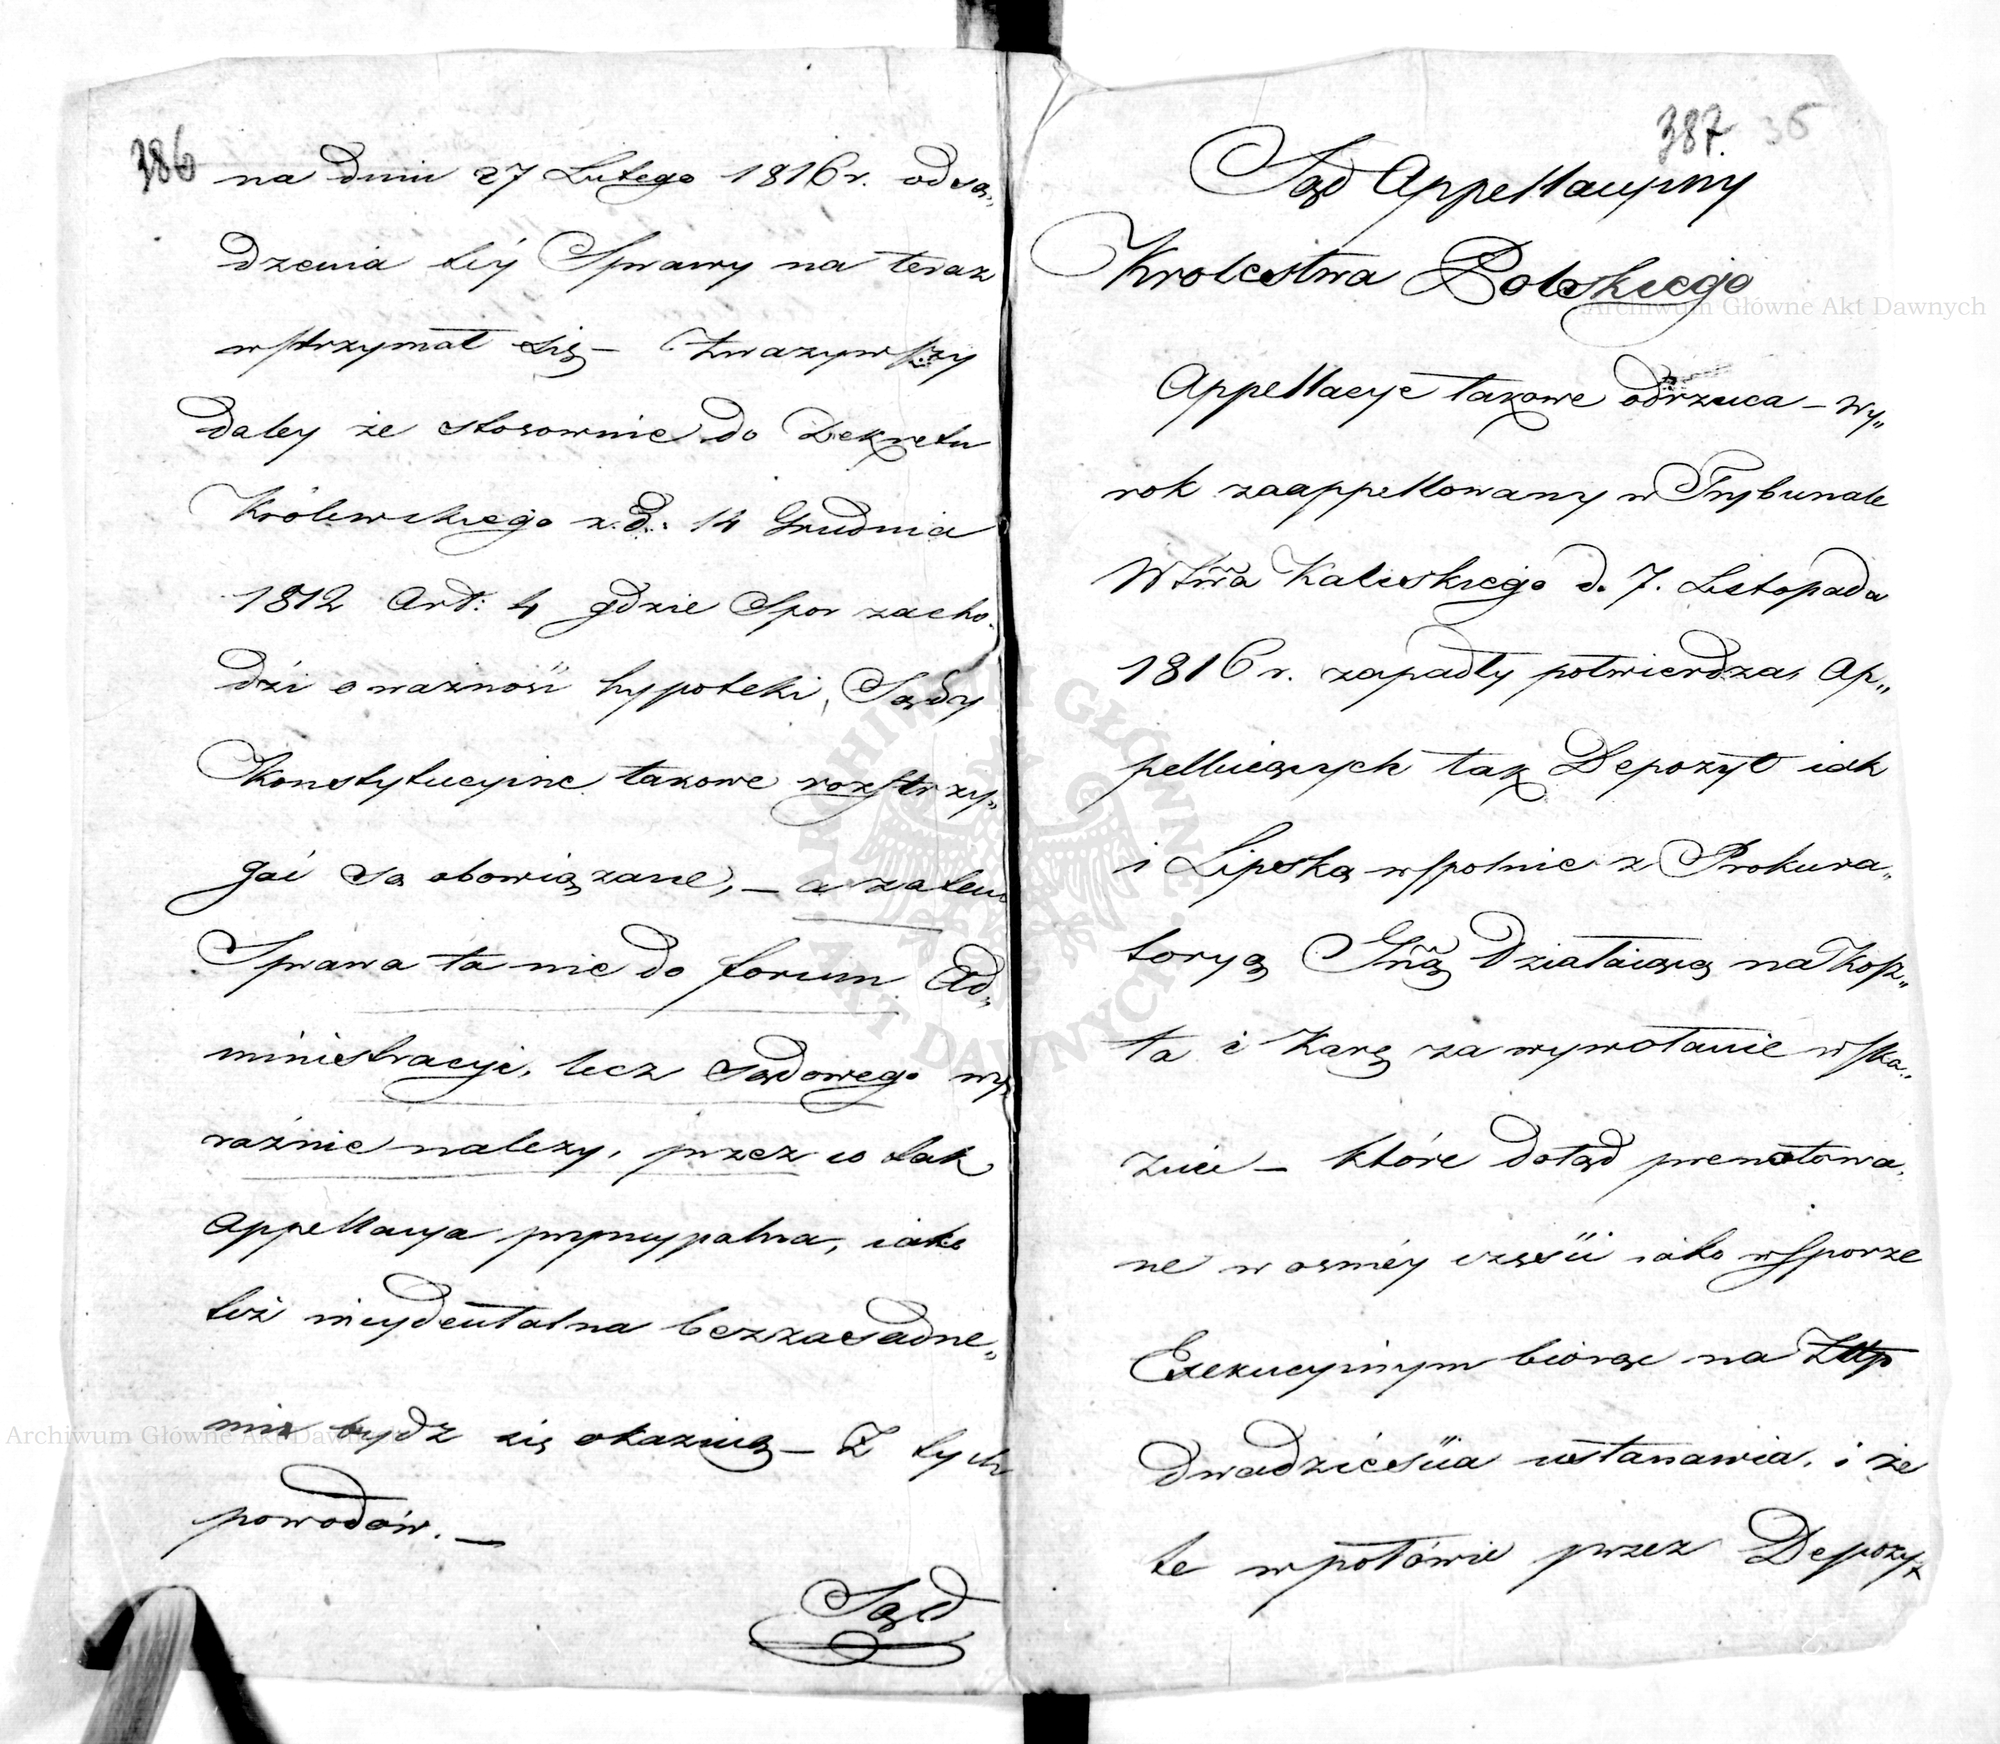 386
na dniu 27 Lutego 1816 r. od są„
dzenia téy Sprawy na teraz
wstrzymał się – Zważywszy
daley że stosownie do Dekretu
Królewskiego z. d: 14 Grudnia
1812 Art: 4 gdzie Spor zacho„
dźi o ważność hypoteki, Sądy
Konstytucyine takowe rozstrzy„
gać są obowiązane, – a zatem
Sprawa ta nie do forum Ad„
ministracyi, lecz Sądowego wy„
raźnie należy, przez co tak
Appellacya pryncypalna, iako
też incydentalna bezzasadne„
mi bydź się okazuią – Z tych
powodów. –
Sąd
387. 36
Sąd Appellacyiny
Krolestwa Polskiego
Appellacye takowe odrzuca – Wy„
rok zaappellowany w Trybunale
Wtwa Kaliskiego d. 7. Listopada
1816 r. zapadły potwierdza, Ap„
pelluiących tak Depozyt iak
i Lipską wspolnie z Prokura„
toryą Gną Działaiącą na Kosz„
ta i Karę za wywołanie wska„
zuie – które dotąd prenotowa„
ne w osméy części iako w Sporze
Exekucyinym biorąc na Złłp
dwadzieścia ustanawia, i że
te w połówie przez Depozyt
Archiwum Główne Akt Dawnych
Archiwum Główne Akt Dawnych
ARCHIWUM GŁÓWNE · AKT DAWNYCH ·